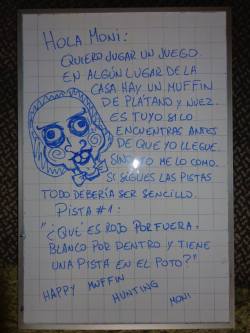 HOLA MONI:
QUIERO JUGAR UN JUEGO.
EN ALGÚN LUGAR DE LA
CASA HAY UN MUFFIN
DE PLÁTANO Y NUEZ.
ES TUYO SI LO
ENCUENTRAS ANTES
DE QUE YO LLEGUE.
SINO YO ME LO COMO.
SI SIGUES LAS PISTAS
TODO DEBERÍA SER SENCILLO.
PISTA #1:
"¿QUÉ ES ROJO POR FUERA,
BLANCO POR DENTRO Y TIENE
UNA PISTA EN EL POTO?"
HAPPY MUFFIN
HUNTING
MONI